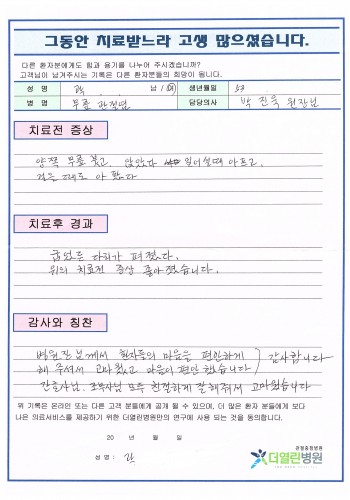 그동안 치료받느라 고생 많으셨습니다.
다른 환자분에게도 힘과 용기를 나누어 주시겠습니까?
고객님이 남겨주시는 기록은 다른 환자분들의 희망이 됩니다.
성 명 곽 남 / 여 생년월일 53
병 명 무릎 관절염 담당의사 박진욱 원장님
치료전 증상
양쪽 무릎 붓고, 앉았다 일어설때 아프고.
걸을 때도 아팠다
치료후 경과
굽었든 다리가 펴졌다.
위의 치료전 증상 좋아졌습니다.
감사와 칭찬
병원장님께서 환자들의 마음을 편안하게
해 주셔서 고마웠고 마음이 편안했습니다 ) 감사합니다
간호사님. 조무사님 모두 친절하게 잘해줘서 고마웠습니다
위 기록은 온라인 또는 다른 고객 분들에게 공개 될 수 있으며, 더 많은 환자 분들에게 보다
나은 의료서비스를 제공하기 위한 더열린병원만의 연구에 사용 되는 것을 동의합니다.
20 년 월 일
성 명 : 곽
관절중점병원
더열린병원